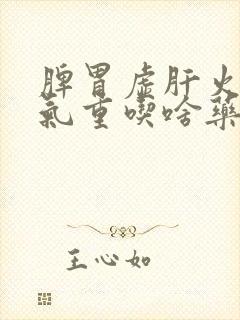 脾胃虚肝火
氣重喫啥藥
王心如